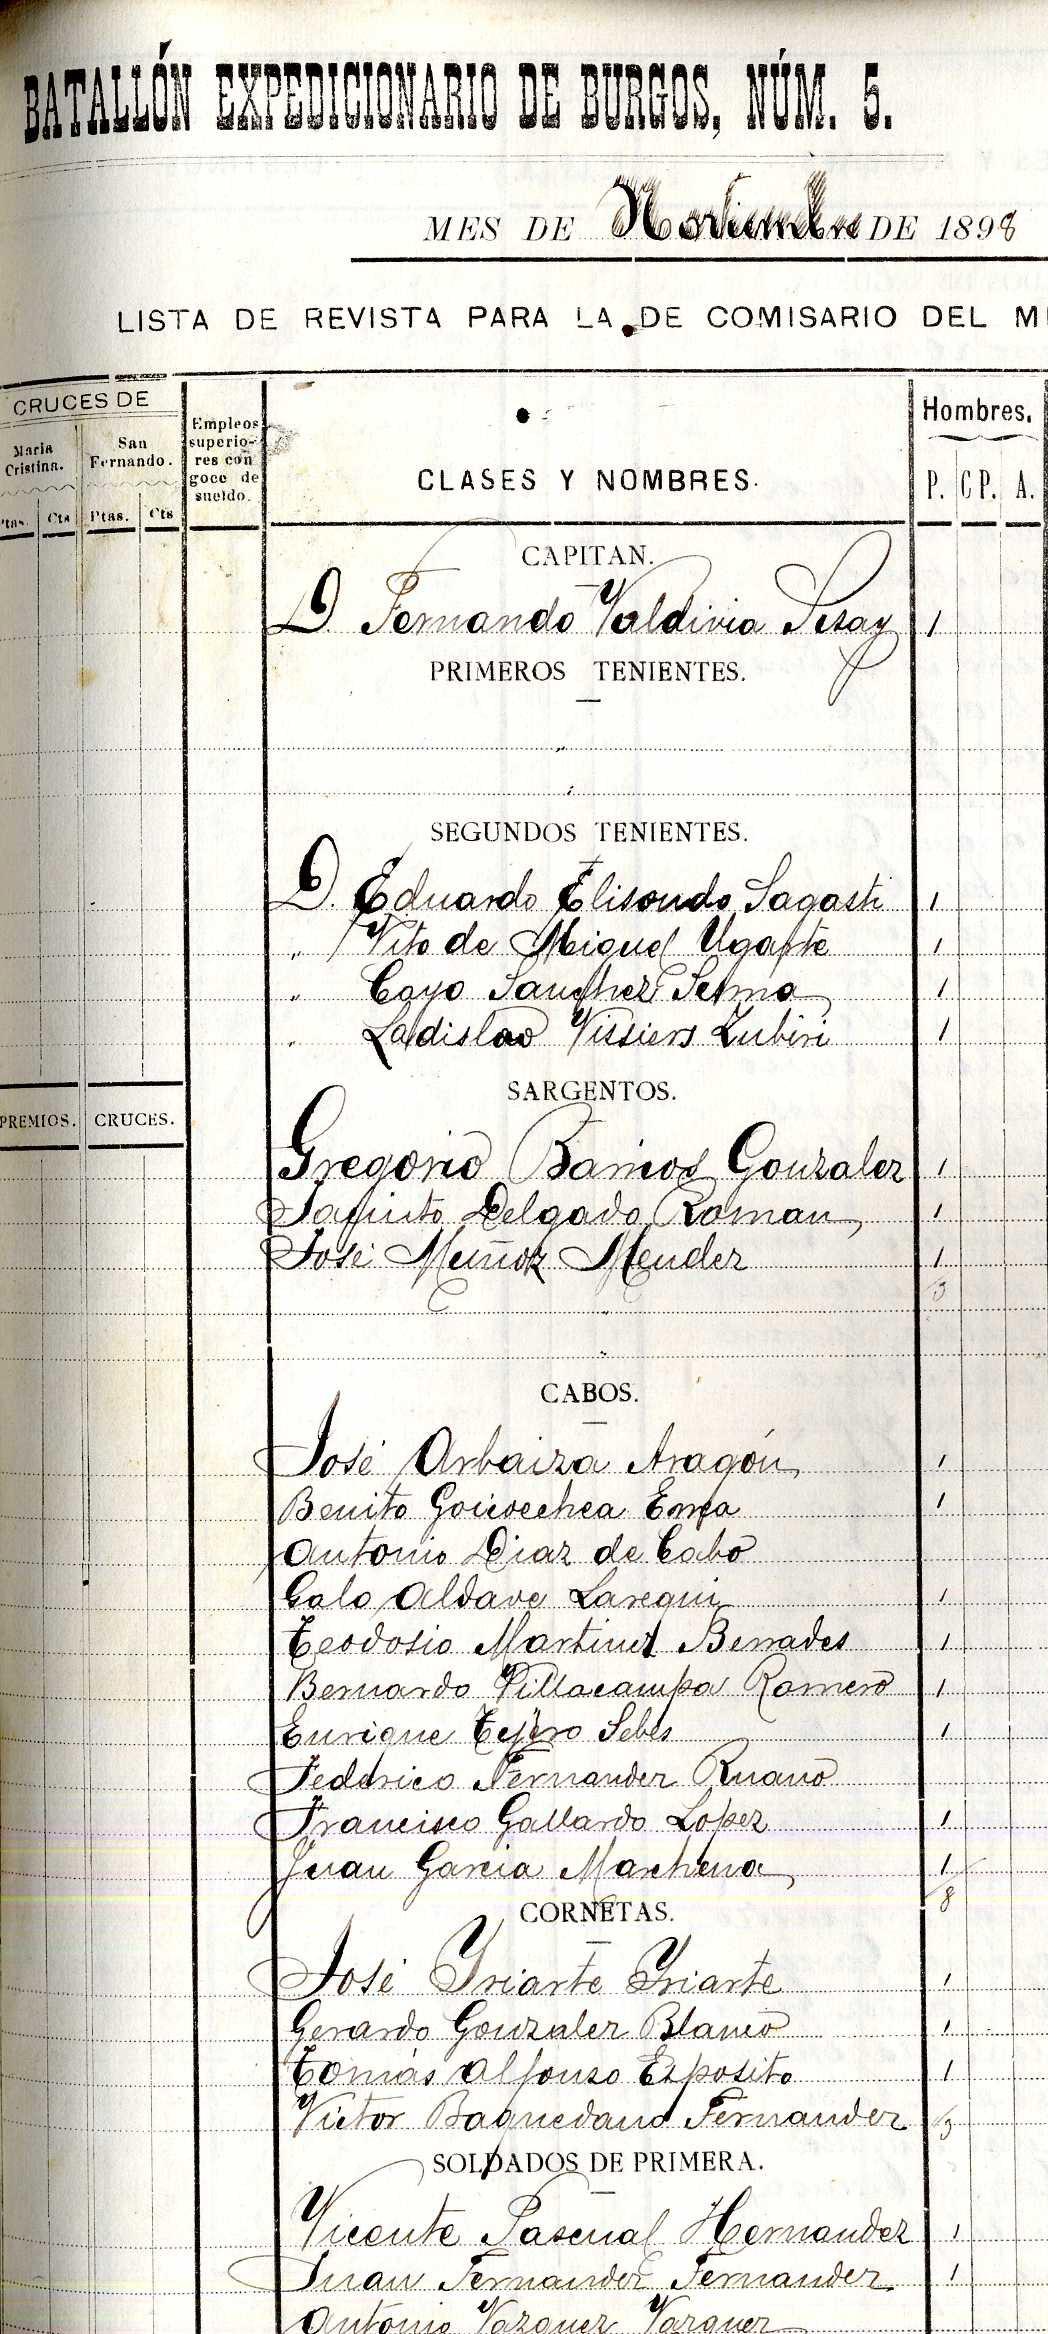 BATALLÓN EXPEDICIONARIO DE BURGOS, NÚM. 5.
MES DE Noviembre DE 1898
LISTA DE REVISTA PARA LA DE COMISARIO DEL
CRUCES DE
Maria Cristina.
San Fernando.
Ptas. Cts Ptas. Cts
Empleos superio-
res con
goce de
sueldo.
CLASES Y NOMBRES.
Hombres.
P. C P. A.
CAPITAN.
D. Fernando Valdivia Sisay 1
PRIMEROS TENIENTES.
SEGUNDOS TENIENTES.
D. Eduardo Elisondo Sagasti 1
" Vito de Miguel Ugarte 1
" Cayo Sanchez Selma 1
" Ladislao Vissiers Zubiri 1
SARGENTOS.
PREMIOS. CRUCES.
Gregorio Barrios Gonzalez 1
Jacinto Delgado Roman 1
José Muñoz Mendez 1
3
CABOS.
José Arbaiza Aragón 1
Benito Goicoechea Erro 1
Antonio Diaz de Cabo
Galo Aldave Larequi 1
Teodosio Martinez Berrades 1
Bernardo Villacampa Romero 1
Enrique Tejero Sebes 1
Federico Fernandez Ruano
Francisco Gallardo Lopez 1
Juan Garcia Marchena 1
8
CORNETAS.
José Yriarte Yriarte 1
Gerardo Gonzalez Blanco 1
Tomás Alfonso Exposito 1
Victor Baquedano Fernandez 3
SOLDADOS DE PRIMERA.
Vicente Pascual Hernandez 1
Juan Fernandez Fernandez 1
Antonio Vazquez Vazquez